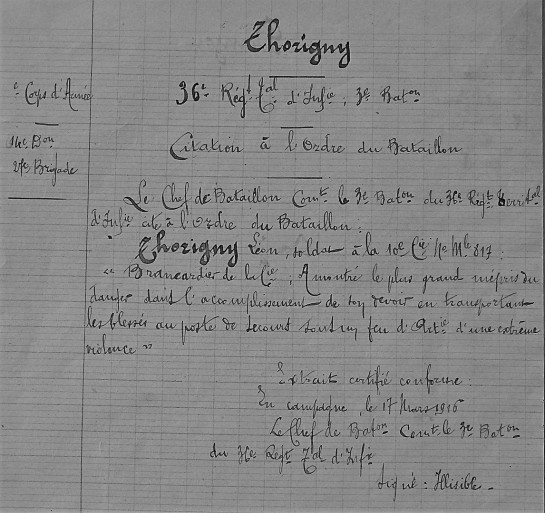 Thorigny
e Corps d'Armée
36e Régt Tal d'Infie, 3e Baton
14e Don
27e Brigade
Citation à l'Ordre du Bataillon
Le Chef de Bataillon Comt le 3e Baton du 36e Régt Territal
d'Infie cite à l'Ordre du Bataillon :
Thorigny Léon, soldat à la 10e Cie, Ne Mle 817 :
" Brancardier de la Cie, A montré le plus grand mépris du
danger dans l'accomplissement de son devoir en transportant
les blessés au poste de secours sous un feu d'Artie d'une extrême
violence "
Extrait certifié conforme
En campagne, le 17 Mars 1916
Le Chef de Baton Comt le 3e Baton
du 36e Régt Tal d'Infie
Signé : Illisible -